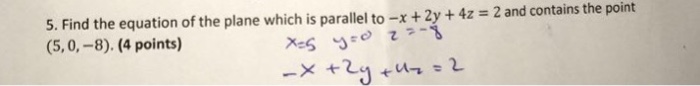 5. Find the equation of the plane which is parallel to −x + 2y + 4z = 2 and contains the point
(5, 0, −8). (4 points)
x=5 y=0 z=-8
-x +2y +4z = 2